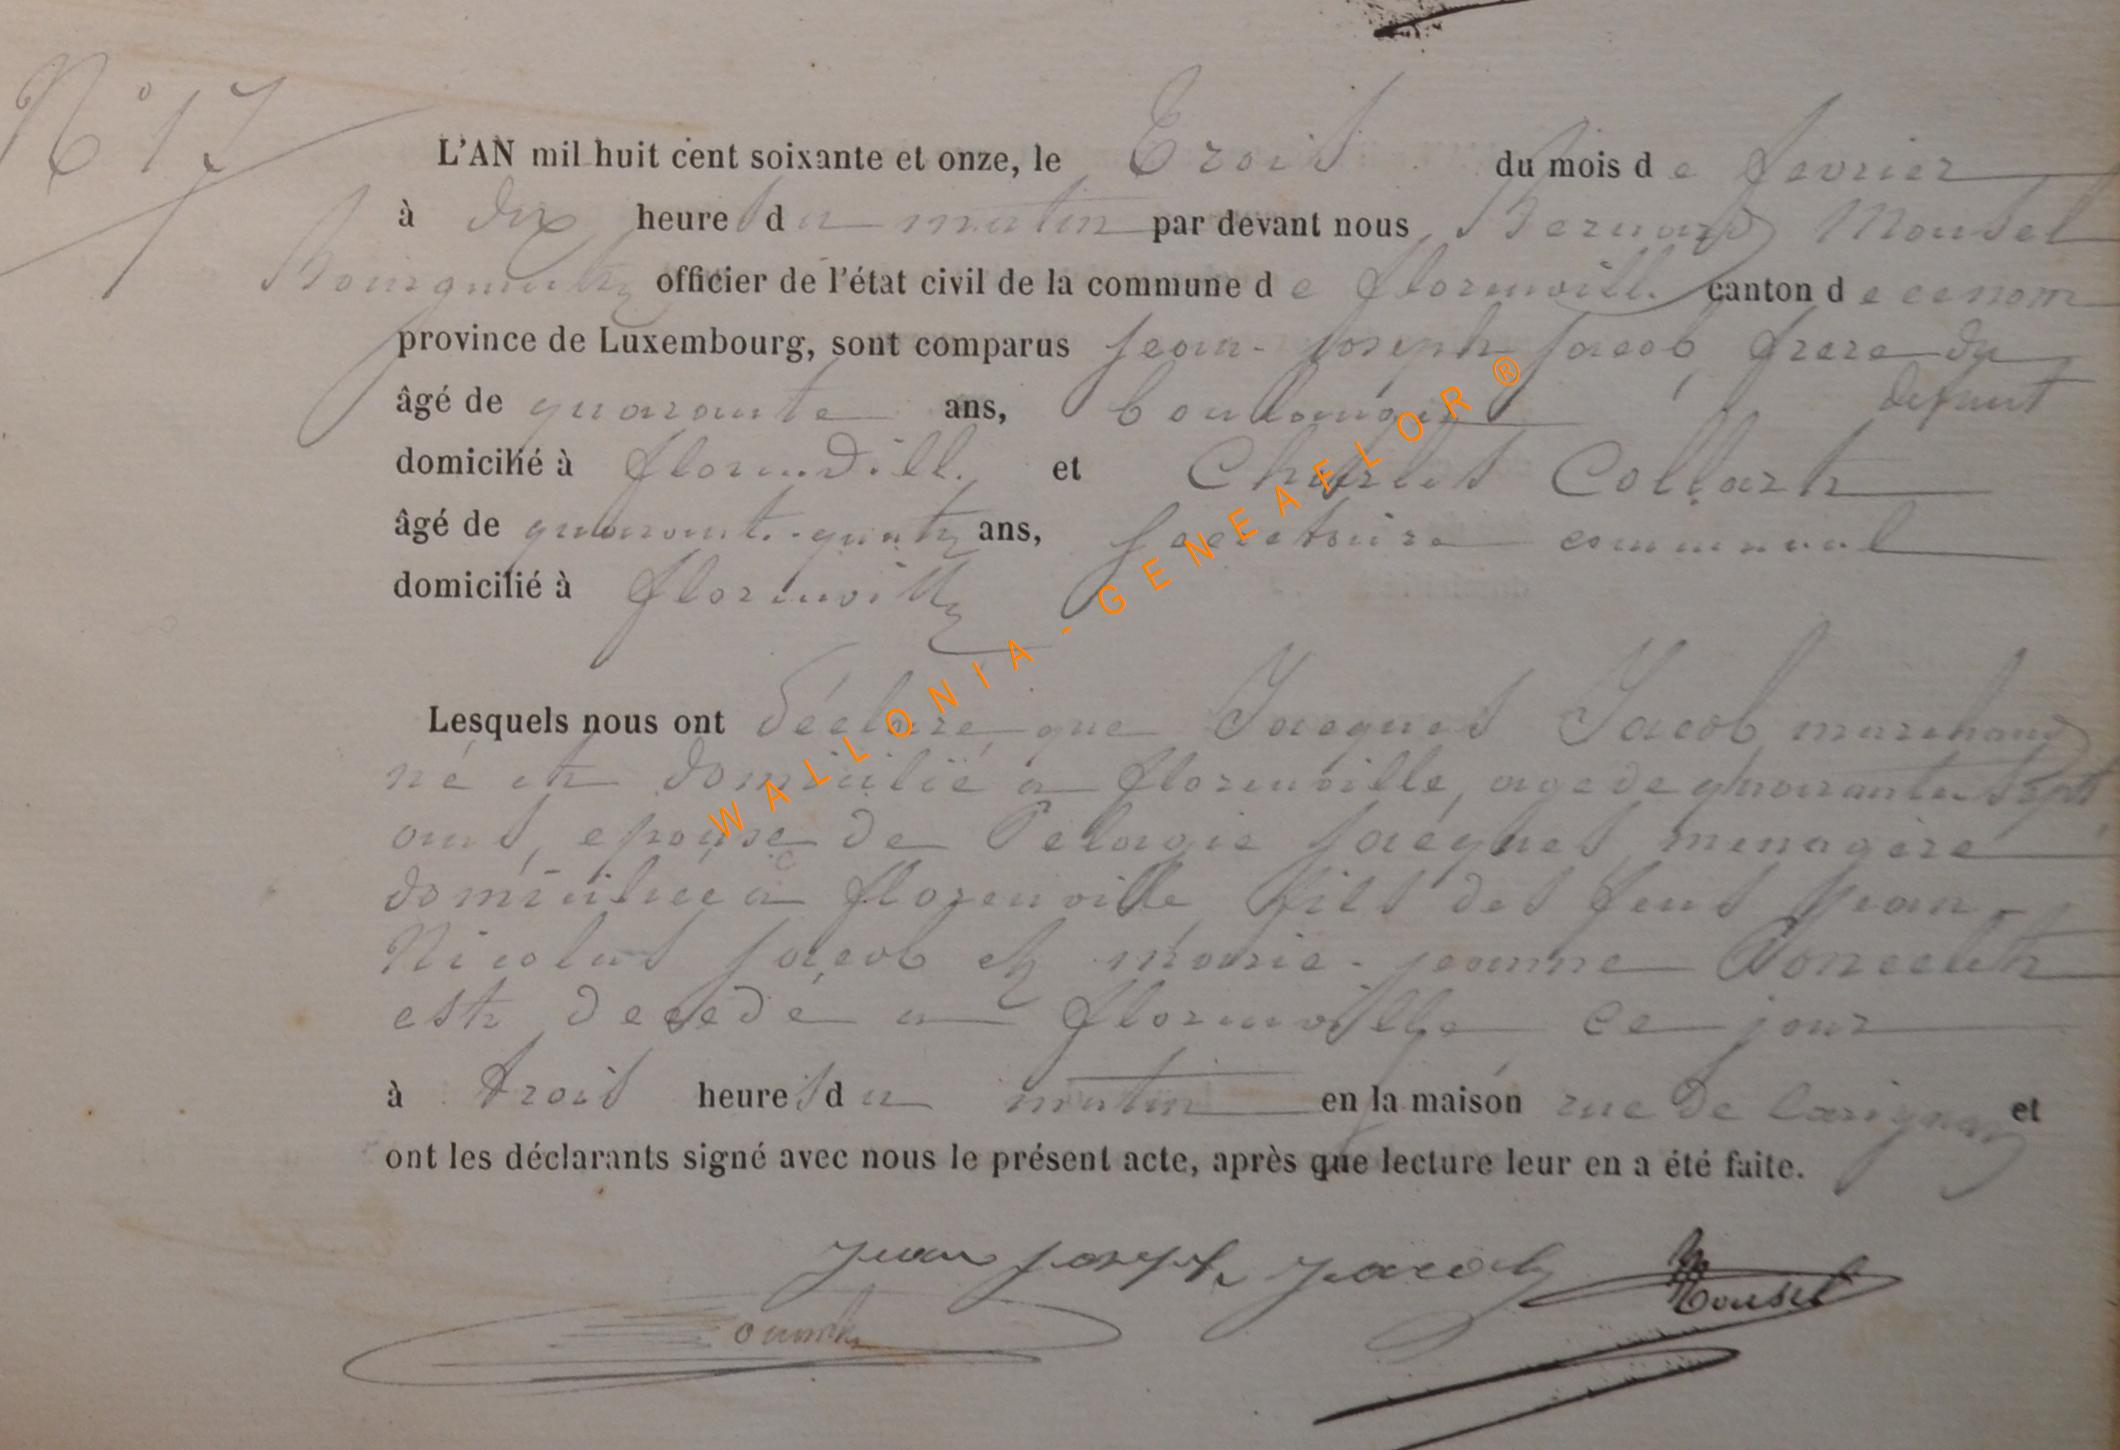 N° 17
L'AN mil huit cent soixante et onze, le Trois du mois de fevrier
à dix heures du matin par devant nous Bernard Mousel
Bourgmestre officier de l'état civil de la commune de florenville canton de ce nom
province de Luxembourg, sont comparus jean-joseph jacob, frere du
defunt
âgé de quarante ans, boulanger
domicilié à florenville et Charles Collart
âgé de quarante-quatre ans, secretaire communal
domicilié à florenville
Lesquels nous ont déclaré que Jacques Jacob, marchand
né et domicilié a florenville, age de quarante sept
ans, epouse de Pelagie jacques, menagere
domiciliée a florenville fils des feus jean-
Nicolas jacob et marie-jeanne Poncelet
est decedé a florenville ce jour
à trois heures du matin en la maison rue de Carignan et
ont les déclarants signé avec nous le présent acte, après que lecture leur en a été faite.
jean joseph jacob Mousel
WALLONIA - GENEAFLOR ®